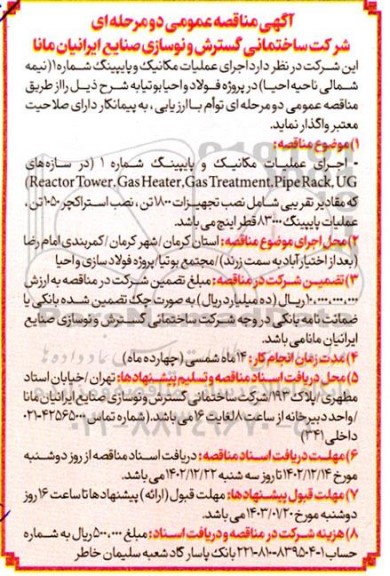 آگهی مناقصه عمومی دو مرحله ای
شرکت ساختمانی گسترش و نوسازی صنایع ایرانیان مانا
این شرکت در نظر دارد اجرای عملیات مکانیک و پایپینگ شماره ۱ (نیمه
شمالی ناحیه احیا) در پروژه فولاد و احیا بوتیا به شرح ذیل را از طریق
مناقصه عمومی دو مرحله ای توأم با ارزیابی، به پیمانکار دارای صلاحیت
معتبر واگذار نماید.
۱) موضوع مناقصه:
- اجرای عملیات مکانیک و پایپینگ شماره ۱ (در سازه‌های
Reactor Tower, Gas Heater, Gas Treatment, Pipe Rack, UG)
که مقادیر تقریبی شامل نصب تجهیزات ۱۸۰۰ تن، نصب استراکچر ۱۰۵۰ تن،
عملیات پایپینگ ۸۳۰۰۰ قطر اینچ می باشد.
۲) محل اجرای موضوع مناقصه: استان کرمان / شهر کرمان / کمربندی امام رضا
(بعد از اختیار آباد به سمت زرند) / مجتمع بوتیا / پروژه فولاد سازی و احیا
۳) تضمین شرکت در مناقصه: مبلغ تضمین شرکت در مناقصه به ارزش
۱۰,۰۰۰,۰۰۰,۰۰۰ ریال (ده میلیارد ریال) به صورت چک تضمین شده بانکی یا
ضمانت نامه بانکی در وجه شرکت ساختمانی گسترش و نوسازی صنایع
ایرانیان مانا می باشد.
۴) مدت زمان انجام کار: ۱۴ ماه شمسی (چهارده ماه)
۵) محل دریافت اسناد مناقصه و تسلیم پیشنهادها: تهران / خیابان استاد
مطهری / پلاک ۱۹۳ / شرکت ساختمانی گسترش و نوسازی صنایع ایرانیان مانا
/ واحد دبیرخانه از ساعت ۸ لغایت ۱۶ می باشد. (شماره تماس ۴۲۵۶۵۰۰۰-۰۲۱
داخلی ۳۴۱)
۶) مهلت دریافت اسناد مناقصه: دریافت اسناد مناقصه از روز دوشنبه
مورخ ۱۴۰۲/۱۲/۱۴ تا روز سه شنبه ۱۴۰۲/۱۲/۲۲ می باشد.
۷) مهلت قبول پیشنهادها: مهلت قبول (ارائه) پیشنهادها تا ساعت ۱۶ روز
دوشنبه مورخ ۱۴۰۳/۰۱/۲۰ می باشد.
۸) هزینه شرکت در مناقصه و دریافت اسناد: مبلغ ۵۰۰,۰۰۰ ریال به شماره
حساب ۱-۸۳۹۵۰۴-۸۱۰-۲۲۱ بانک پاسارگاد شعبه سلیمان خاطر